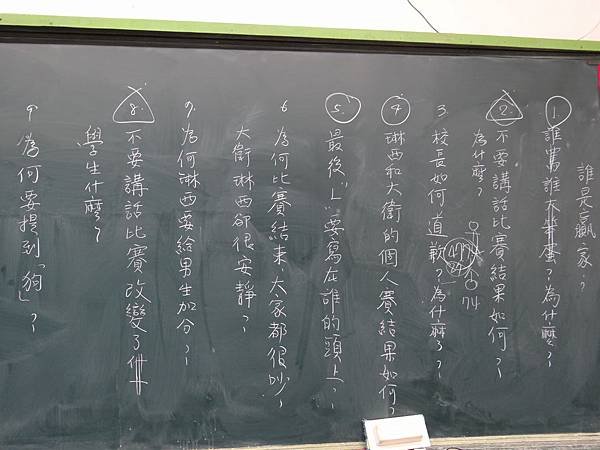 誰是贏家?
1. 誰罵誰大笨蛋?為什麼?
2. 不要講話比賽結果如何?
為什麼?
3. 校長如何道歉?為什麼?
74
4. 琳西和大衛的個人賽結果如何?
5. 最後"L"要寫在誰的頭上?
6 為何比賽結束,大家都很吵,
大衛琳西卻很安靜?
7. 為何琳西要給男生加分?
8. 不要講話比賽改變了
學生什麼?
9 為何要提到「狗」?